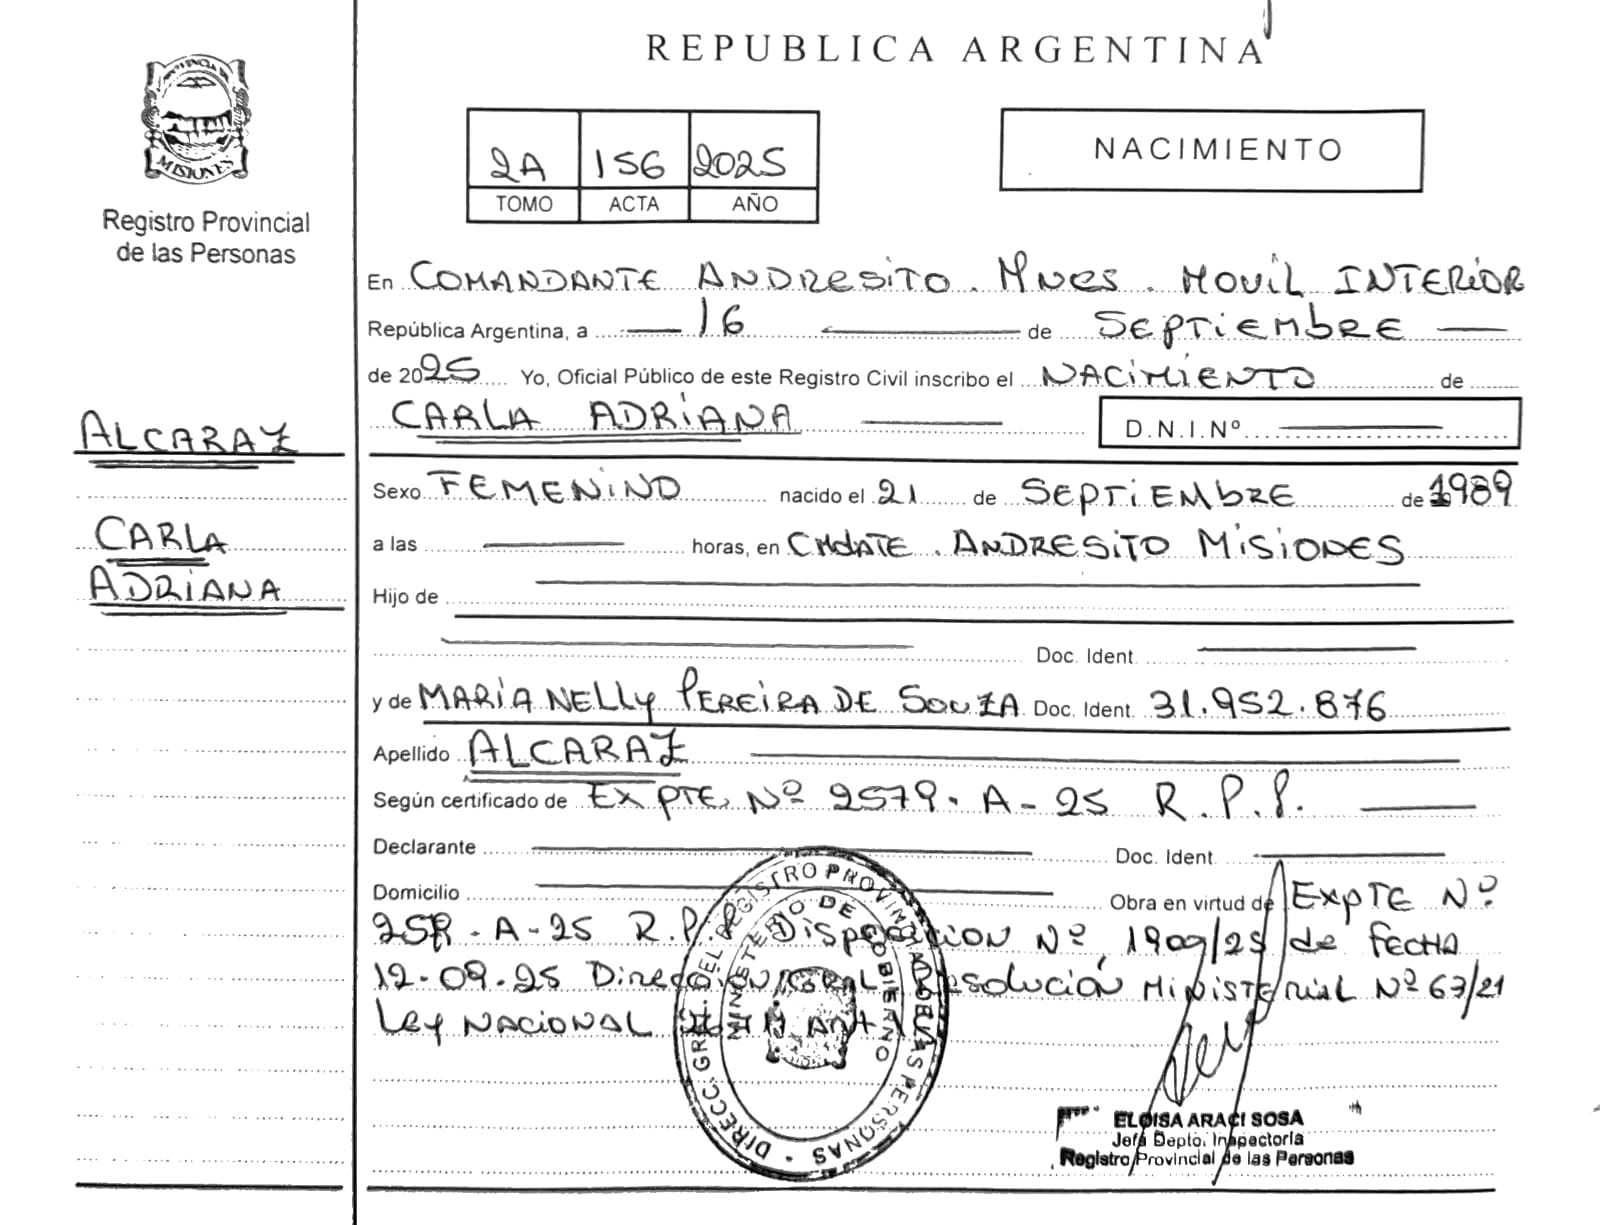 REPUBLICA ARGENTINA
PROVINCIA DE
MISIONES
Registro Provincial
de las Personas
2A 156 2025
TOMO ACTA AÑO
NACIMIENTO
En COMANDANTE ANDRESITO. Mnes. MOVIL INTERIOR
República Argentina, a 16 de SEPTIEMBRE
de 2025 Yo, Oficial Público de este Registro Civil inscribo el NACIMIENTO de
CARLA ADRIANA D.N.I.Nº
ALCARAZ
CARLA
ADRIANA
Sexo FEMENINO nacido el 21 de SEPTIEMBRE de 1989
a las horas, en CMDATE. ANDRESITO MISIONES
Hijo de
Doc. Ident.
y de MARIA NELLY PEREIRA DE SOUZA Doc. Ident. 31.952.876
Apellido ALCARAZ
Según certificado de EXPTE. Nº 2579. A-25 R.P.P.
Declarante Doc. Ident.
Domicilio Obra en virtud de EXPTE Nº
A-25 R.P.P. Disposicion Nº 1909/25 de FECHA
12-09-25 Dirección GRAL Resolución MINISTERIAL Nº 63/21
Ley NACIONAL
DIRECC. GRAL. DEL REGISTRO PROVINCIAL DE LAS PERSONAS
MINISTERIO DE GOBIERNO
ELOISA ARACI SOSA
Jefa Depto. Inspectoria
Registro Provincial de las Personas